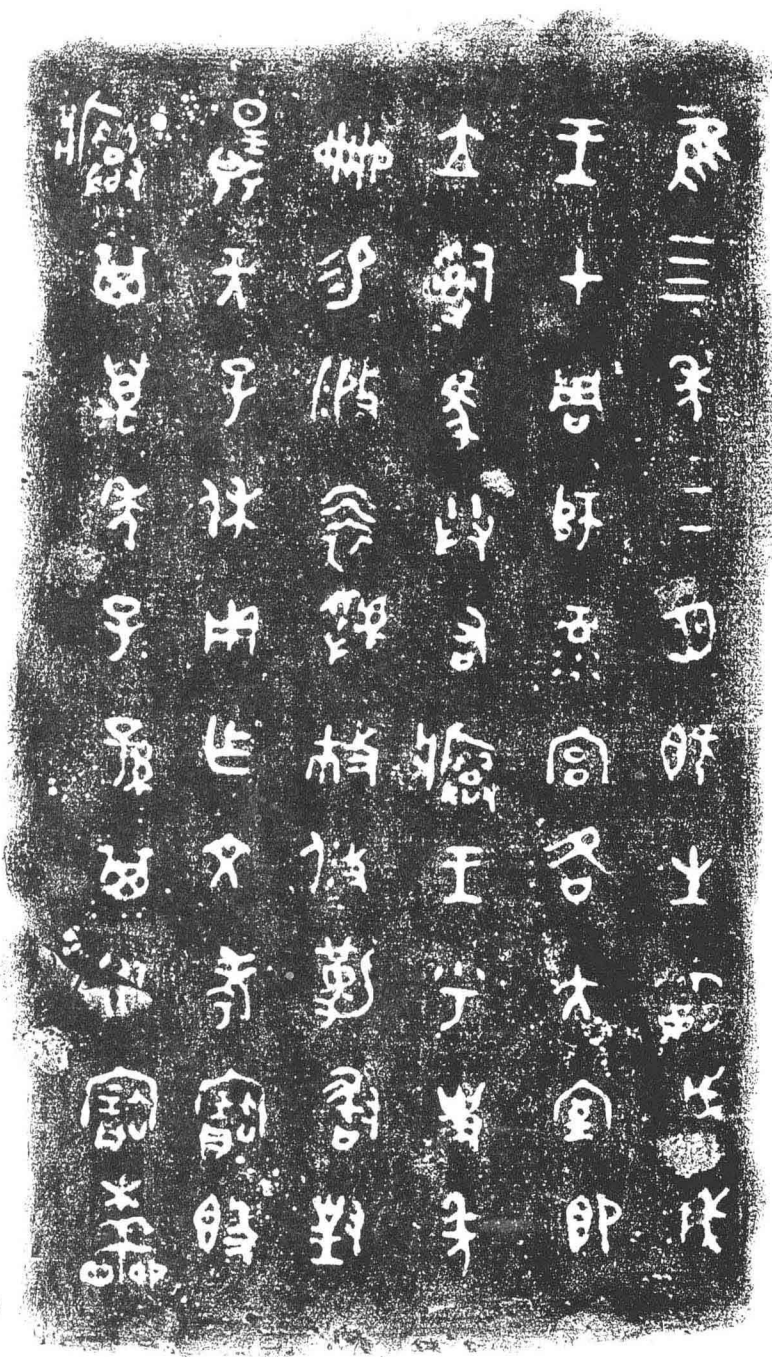 隹四年二月既生霸戊戌
王才周師彔宮各大室即
立𤔲馬共右𤼈王乎史年
冊易般靳虢攸勒敢對
揚天子休用乍文考寶𣪘
𤼈其萬年子孫其永寶木羊冊